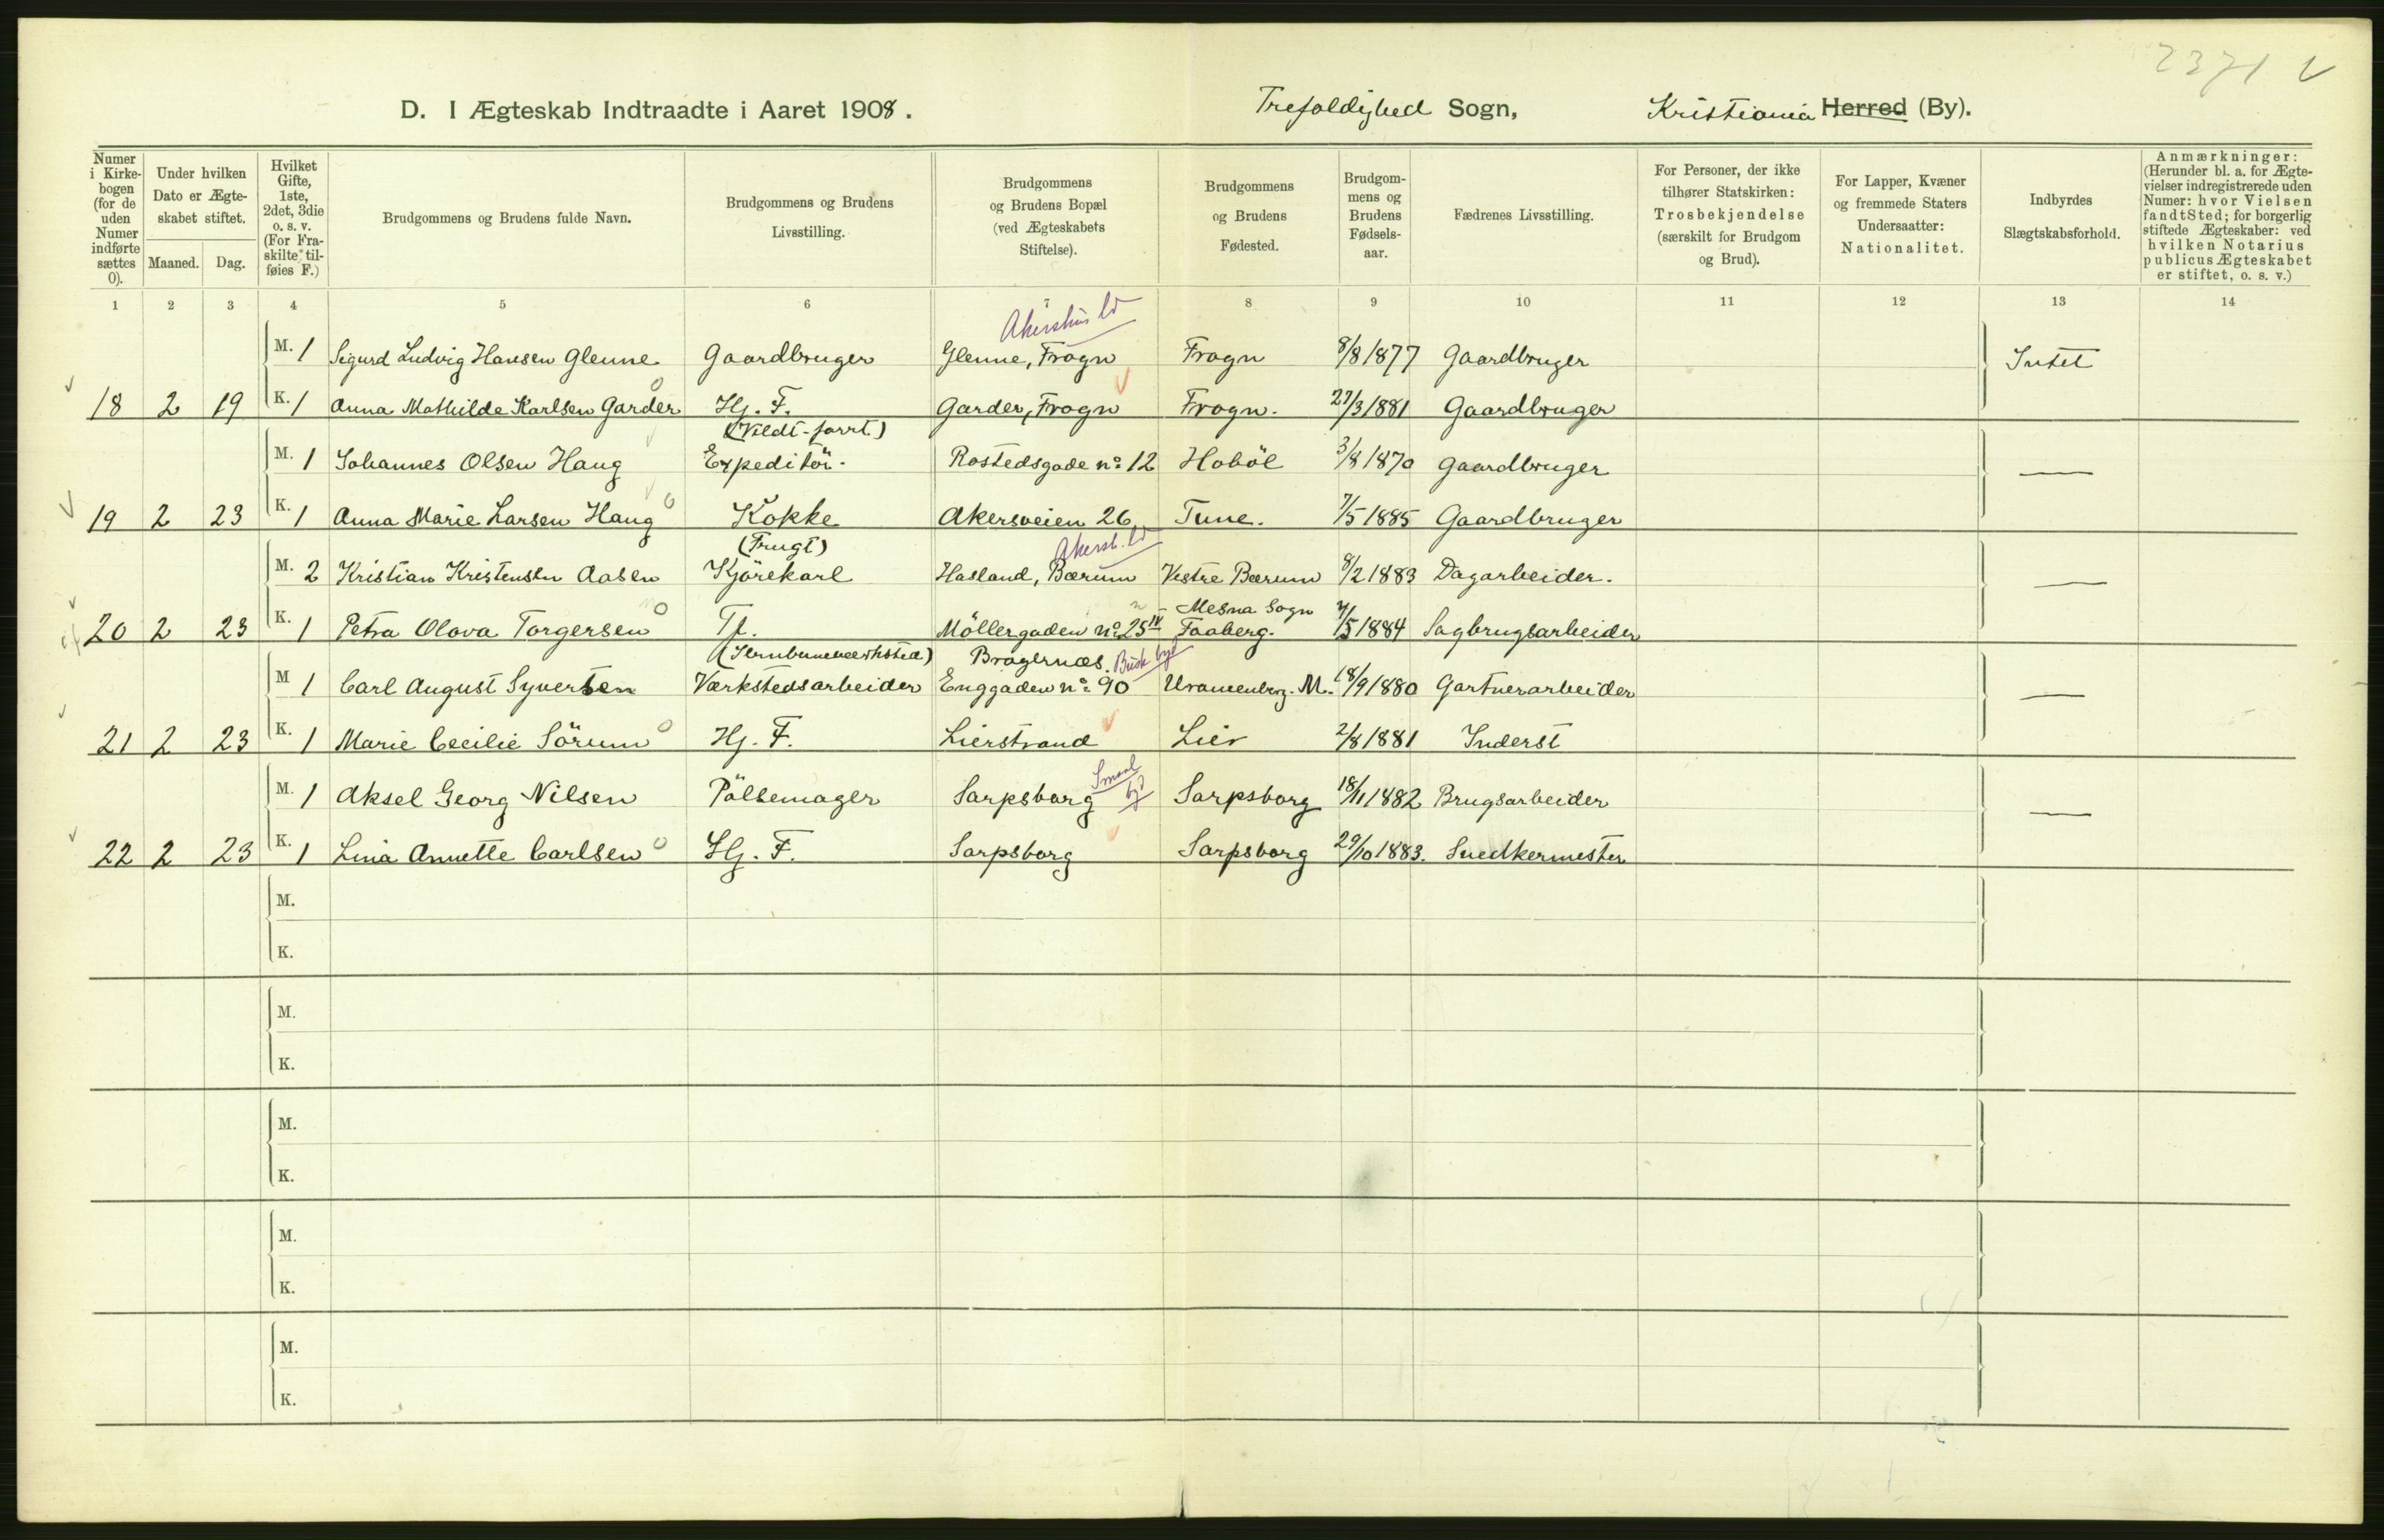 2371 V
D. I Ægteskab Indtraadte i Aaret 1908. Trefoldighed Sogn, Kristiania Herred (By).
Numer i Kirkebogen (for de uden Numer indførte sættes 0).
Under hvilken Dato er Ægteskabet stiftet.
Maaned. Dag.
Hvilket Gifte, 1ste, 2det, 3die o. s. v. (For Fraskilte tilføies F.)
Brudgommens og Brudens fulde Navn.
Brudgommens og Brudens Livsstilling.
Brudgommens og Brudens Bopæl (ved Ægteskabets Stiftelse).
Brudgommens og Brudens Fødested.
Brudgommens og Brudens Fødselsaar.
Fædrenes Livsstilling.
For Personer, der ikke tilhører Statskirken: Trosbekjendelse (særskilt for Brudgom og Brud).
For Lapper, Kvæner og fremmede Staters Undersaatter: Nationalitet.
Indbyrdes Slægtskabsforhold.
Anmærkninger: (Herunder bl. a. for Ægtevielser indregistrerede uden Numer: hvor Vielsen fandt Sted; for borgerlig stiftede Ægteskaber: ved hvilken Notarius publicus Ægteskabet er stiftet, o. s. v.)
1 2 3 4 5 6 7 8 9 10 11 12 13 14
Akershus ld
M. 1 Sigurd Ludvig Hansen Glenne Gaardbruger Glenne, Frogn Frogn 8/8 1877 Gaardbruger Intet
18 2 19 K. 1 Anna Mathilde Karlsen Garder Hj. F. Garder, Frogn Frogn. 27/3 1881 Gaardbruger
(Vildt-forrt.)
M. 1 Johannes Olsen Haug Expeditör. Rostedsgade no 12 Haböl 3/8 1870 Gaardbruger —
19 2 23 K. 1 Anna Marie Larsen Haug Kokke Akersveien 26 Tune. 7/5 1885 Gaardbruger
(Frugt) Akersh. ld
M. 2 Kristian Kristensen Aasen Kjörekarl Hasland, Bærum Vestre Bærum 8/2 1883 Dagarbeider. —
Mesna Sogn
20 2 23 K. 1 Petra Olava Torgersen Tj. Möllergaden no 25 IV Faaberg. 4/5 1884 Sagbrugsarbeider
(Jernbaneverksted) Bragernæs. Busk byd
M 1 Carl August Syversen Værkstedsarbeider Enggaden no 90 Uranienborg. M. 18/9 1880 Gartnerarbeider —
21 2 23 K. 1 Marie Cecilie Sörum Hj. F. Lierstrand Lier 2/8 1881 Inderst
Smaal by
M. 1 Aksel Georg Nilsen Pölsemager Sarpsborg Sarpsborg 18/11 1882 Brugsarbeider —
22 2 23 K. 1 Lina Annette Carlsen Hj. F. Sarpsborg Sarpsborg 29/10 1883. Snedkermester
M.
K.
M.
K.
M.
K.
M.
K.
M.
K.